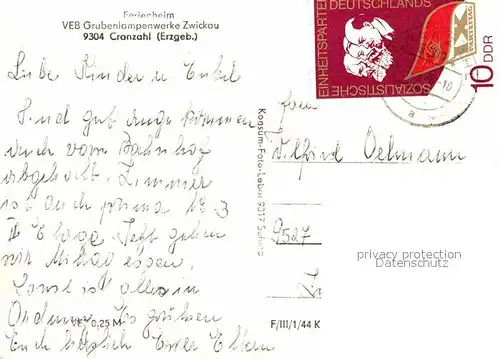 Ferienheim
VEB Grubenlampenwerke Zwickau
9304 Cranzahl (Erzgeb.)
Liebe Kinder u. Enkel
Sind gut angekommen
auch vom Bahnhof
abgeholt. Zimmer
ist auch prima Nr 3
II Etage. Jetzt gehen
wir Mittag essen.
Sonst ist alles in
Ordnung. Es grüßen
Euch herzlich Eure Eltern
VEP 0,25 M
F/III/1/44 K
Konsum-Foto-Labor 9317 Sehma
SOZIALISTISCHE
EINHEITSPARTEI
DEUTSCHLANDS
PARTEITAG
10 DDR
Wilfried Oelmann
9527
privacy protection
Datenschutz